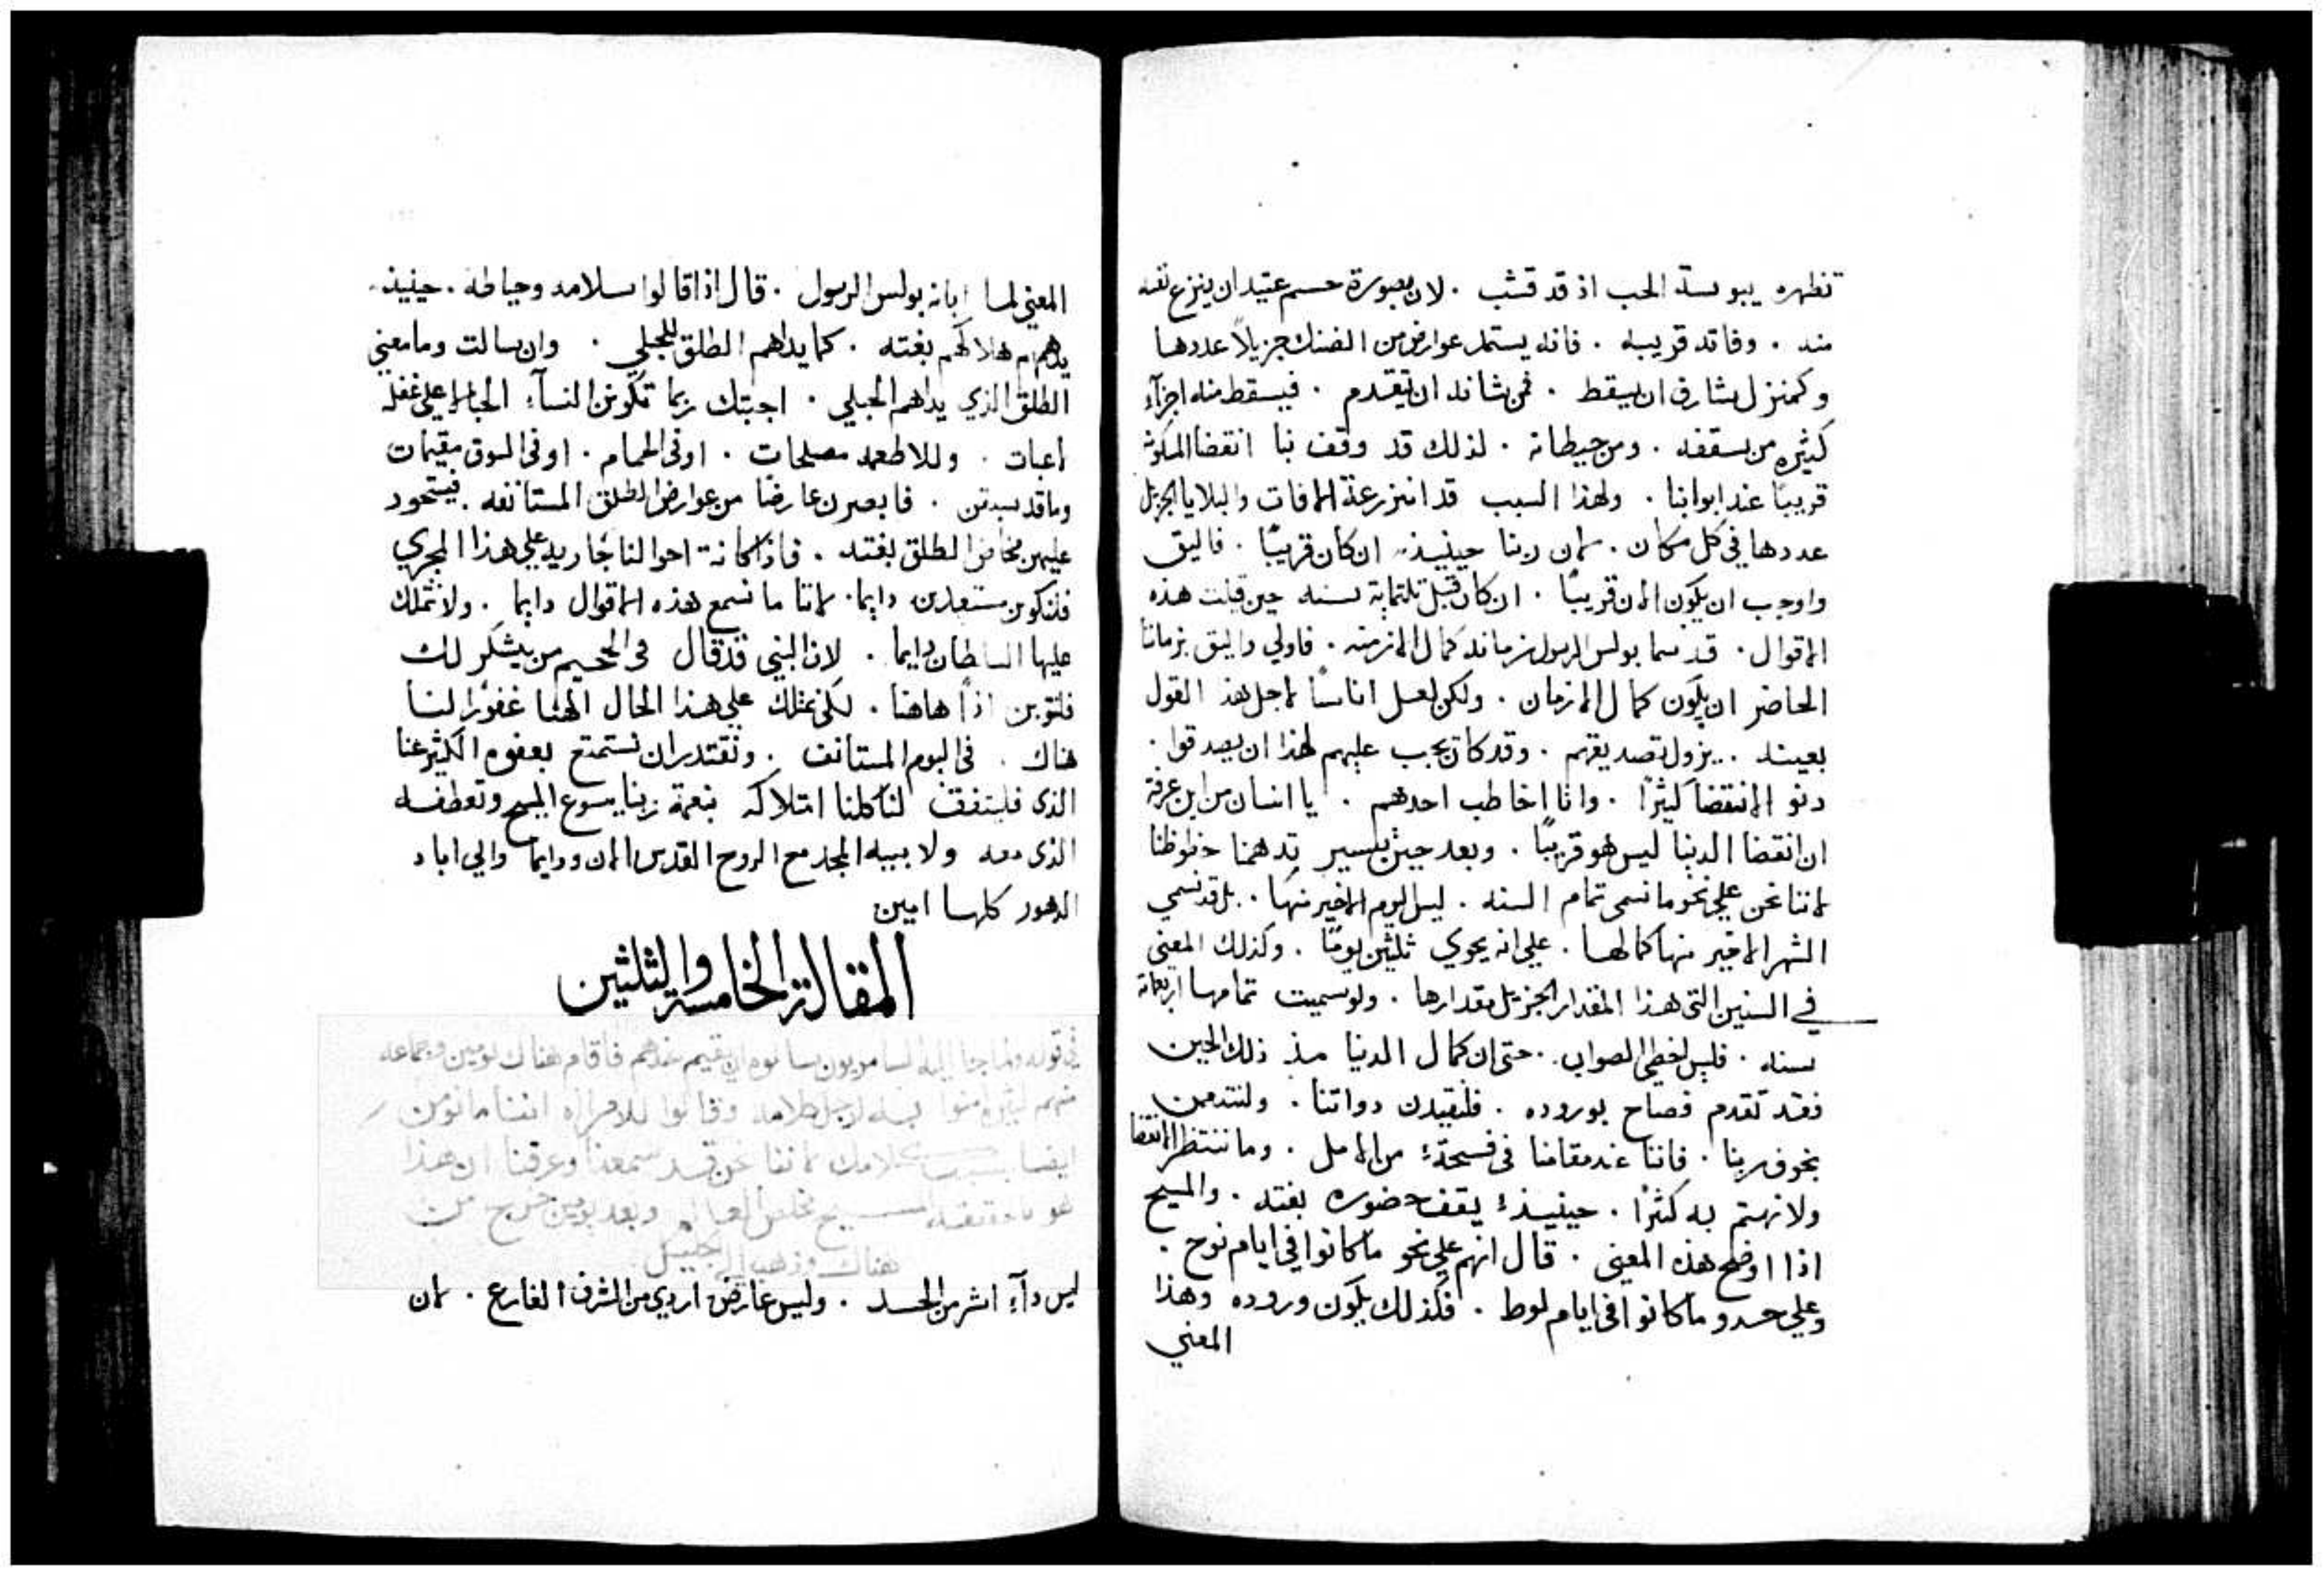 تظهره يبوسة الحب اذ قد قشب . لان بصورة جسم عتيد ان ينزع نفسه
منه . وفاقد قريبه . فانه يستمد عوارض من الضنك جزيلاً عددها
وكمنزل يشارف ان يسقط . فمن شانه ان يتقدم . فيسقط منه اجزآء
كثيره من سقفه . ومن حيطانه . لذلك قد وقف بنا انقضا المسكونه
قريبًا عند ابوابنا . ولهذا السبب قد انزرعة الافات والبلايا الجزيل
عددها في كل مكان . لان ربنا حينيذ ان كان قريبًا . فاليق
واوجب ان يكون الان قريبًا . ان كان قبل ثلثماية سنه حين قيلت هذه
الاقوال . قد سما بولس الرسول زمانه كمال الازمنه . فاولي واليق بزماننا
الحاضر ان يكون كمال الازمان . ولكن لعل اناسًا لاجل هذ القول
بعينه . . يزول تصديقهم . وقد كان يجب عليهم لهذا ان يصدقوا .
دنو الانقضا كثيرًا . وانا اخاطب احدهم . يا انسان من اين عرفة
ان انقضا الدنيا ليس هو قريبًا . وبعد حين يسير تدهمنا حظوظنا
لاننا نحن علي نحو ما نسمي تمام السنه . ليس اليوم الاخير منها . بل قد نسمي
الشهر الاخير منها كمالها . علي انه يحوي ثلثين يومًا . وكذلك المعني
في السنين التي هذا المقدار الجزيل مقدارها . ولو سميت تمامها اربعماية
سنه . فليس اخطي الصواب . حتي ان كمال الدنيا مذ ذلك الحين
فقد تقدم فصاح بوروده . فلنقيدن دواتنا . ولنتدمن
بخوف ربنا . فاننا عند مقامنا في فسحة من الامل . وما ننتظر الانقضا
ولا نهتم به كثيرًا . حينيذ يقف حضوره بغته . والمسيح
اذا اوضح هذه المعني . قال انهم علي نحو ما كانوا في ايام نوح .
وعلي حدو ما كانوا في ايام لوط . فكذلك يكون وروده وهذا
المعني
المعني لما ابانه بولس الرسول . قال اذا قالوا سلامه وحياطه . حينيذ
يدهمهم هلاكهم بغته . كما يداهم الطلق للحبلي . وان سالت وما معني
الطلق الذي يداهم الحبلي . اجبتك ربما تكون النسآء الحبالا علي غفله
لاعبات . وللاطعمه مصلحات . او في الحمام . او في السوق مقيمات
وما قد سبدتن . فابصرن عارضًا من عوارض الطلق المستانفه . فيستحود
عليهن مخاض الطلق بغته . فاذا كانة احوالنا جاريه علي هذا المجري
فلنكون مستعدين دايما . لاننا ما نسمع هذه الاقوال دايما . ولا نتملك
عليها السلطان دايما . لان النبي قد قال في الجحيم من يشكر لك
فلنتوبن اذًا هاهنا . لكي نمتلك علي هذا الحال الهنا غفورًا لنا
هناك . في اليوم المستانف . ونقتدر ان نستمتع بعفوه الكثير غنا
الذي فليتفق لنا كلنا امتلاكه بنعمة ربنا يسوع المسيح وتعطفه
الذي معه ولابيه المجد مع الروح القدس الان ودايما والي اباد
الدهور كلها امين
المقالة الخامسة والثلثين
في قوله ولما جا اليه السامريون سالوه ان يقيم عندهم فاقام هناك يومين وجماعه
منهم كثيره امنوا به لاجل كلامه وقالوا للامراه اننا ما نومن
ايضا بسبب كلامك لاننا نحن قد سمعنا وعرفنا ان هذا
هو بالحقيقه المسيح مخلص العالم وبعد يومين خرج من
هناك وذهب الي الجليل
ليس دآء اشر من الحسد . وليس عارض اردي من الشرف الفارغ . لان